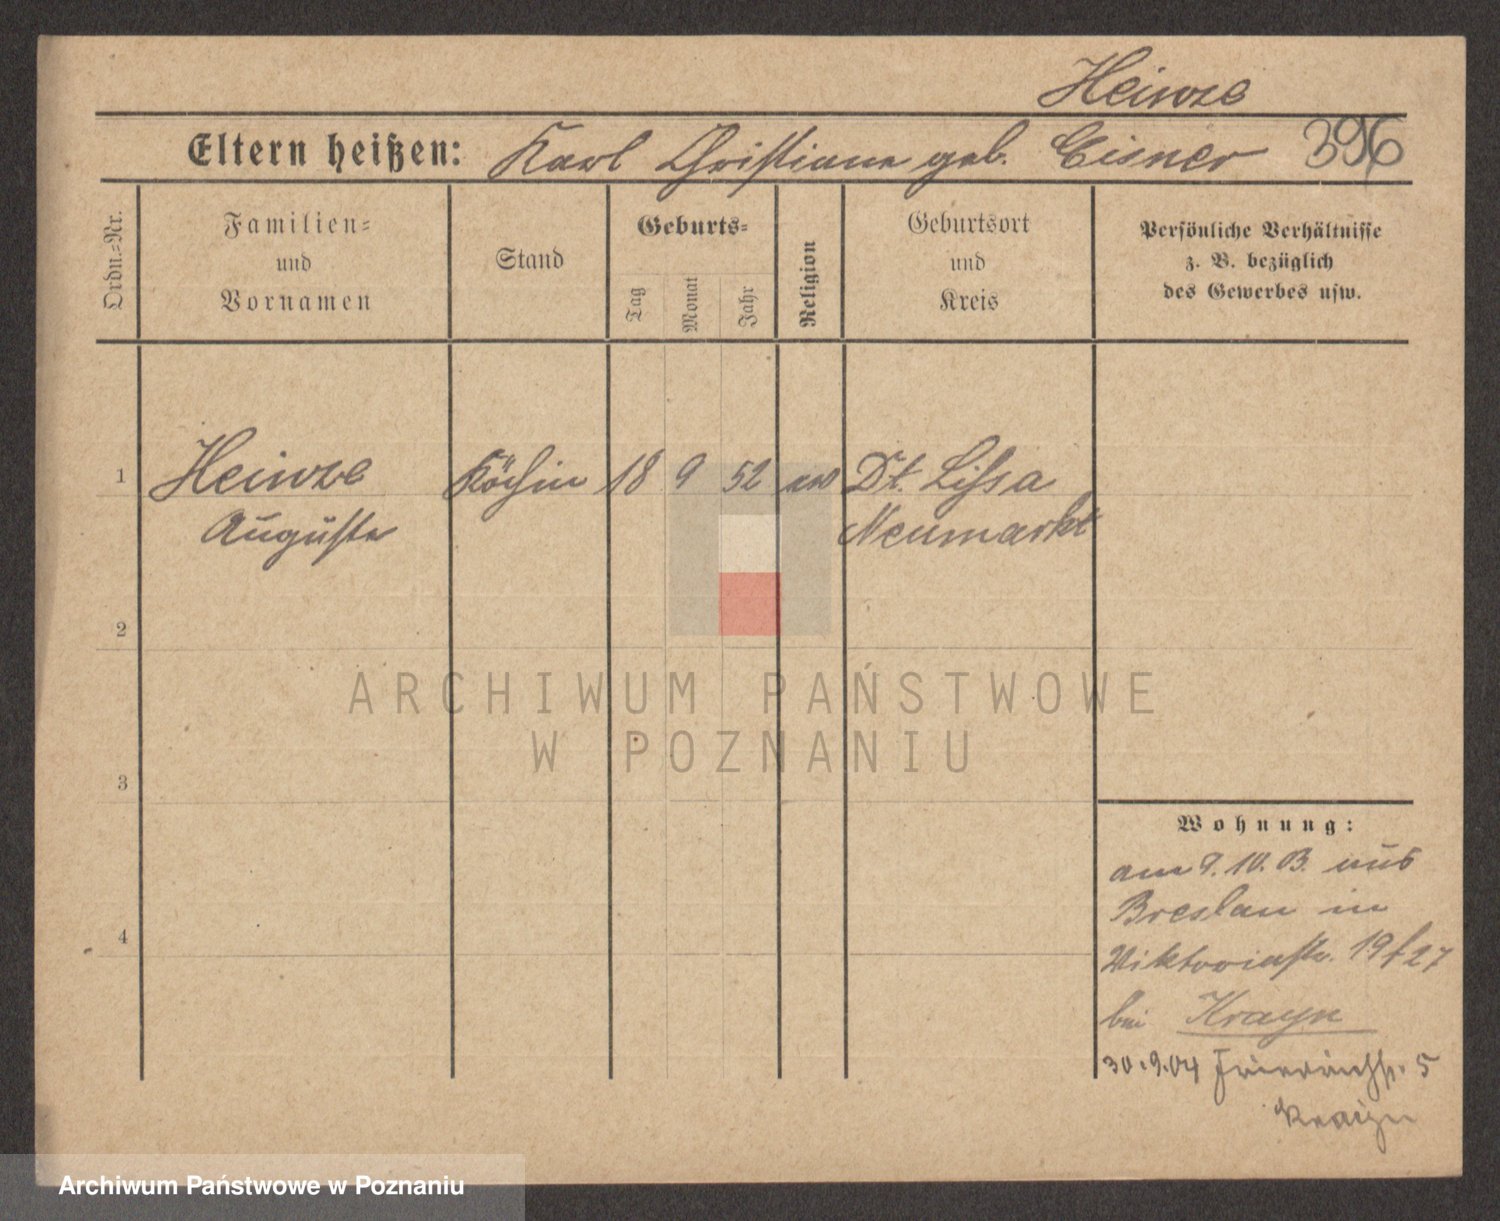 Heinze
Eltern heißen: Karl Christiane geb. Eisner 396
Ordn.-Nr.
Familien-
und
Vornamen
Stand
Geburts-
Tag
Monat
Jahr
Religion
Geburtsort
und
Kreis
Persönliche Verhältnisse
z. B. bezüglich
des Gewerbes usw.
1 Heinze Köchin 18 9 52 ev Dt. Lissa
Auguste Neumarkt
2
ARCHIWUM PAŃSTWOWE
W POZNANIU
3
Wohnung:
am 9. 10. B. aus
Breslau in
4
Viktoriastr. 19 / 27
bei Krayn
30.9.04 Friedrichstr. 5
Krayn
Archiwum Państwowe w Poznaniu